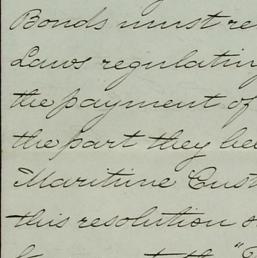 Bonds must re
Laws regulating
the payment of
the part they be
Maritime Cust
this resolution o